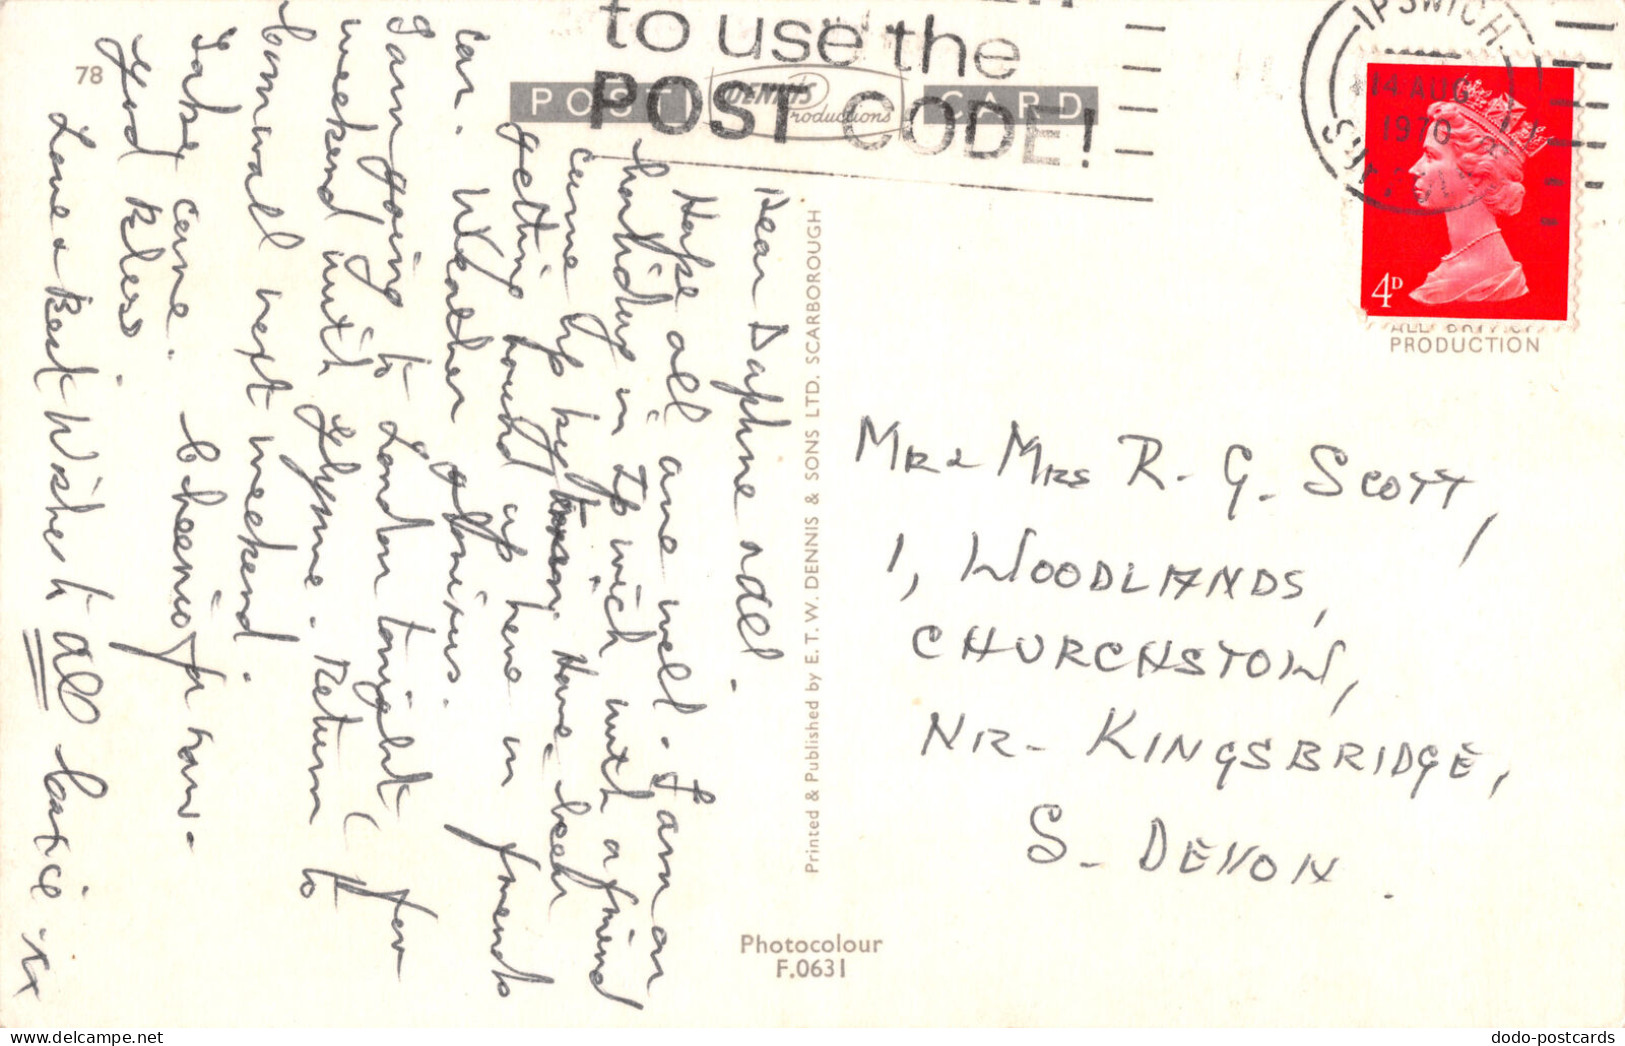 to use the
POST CODE!
POST CARD
DENNIS
Productions
IPSWICH
14 AUG
1970
4D
PRODUCTION
78
Dear Daphne and all.
Hope all are well. I am on
holiday in Ipswich with a friend
came up by train. Have been
getting around up here in friends
car. Weather glorious.
I am going to London tonight for
weekend with Glynne. Return to
Cornwall next weekend.
Take care. Cheerio for now.
God bless
Love & Best Wishes to all
xx
Printed & Published by E. T. W. DENNIS & SONS LTD. SCARBOROUGH
Photocolour
F.0631
MR & MRS R. G. SCOTT,
1, WOODLANDS,
CHURCHSTOW,
NR- KINGSBRIDGE,
S. DEVON.
dodo-postcards